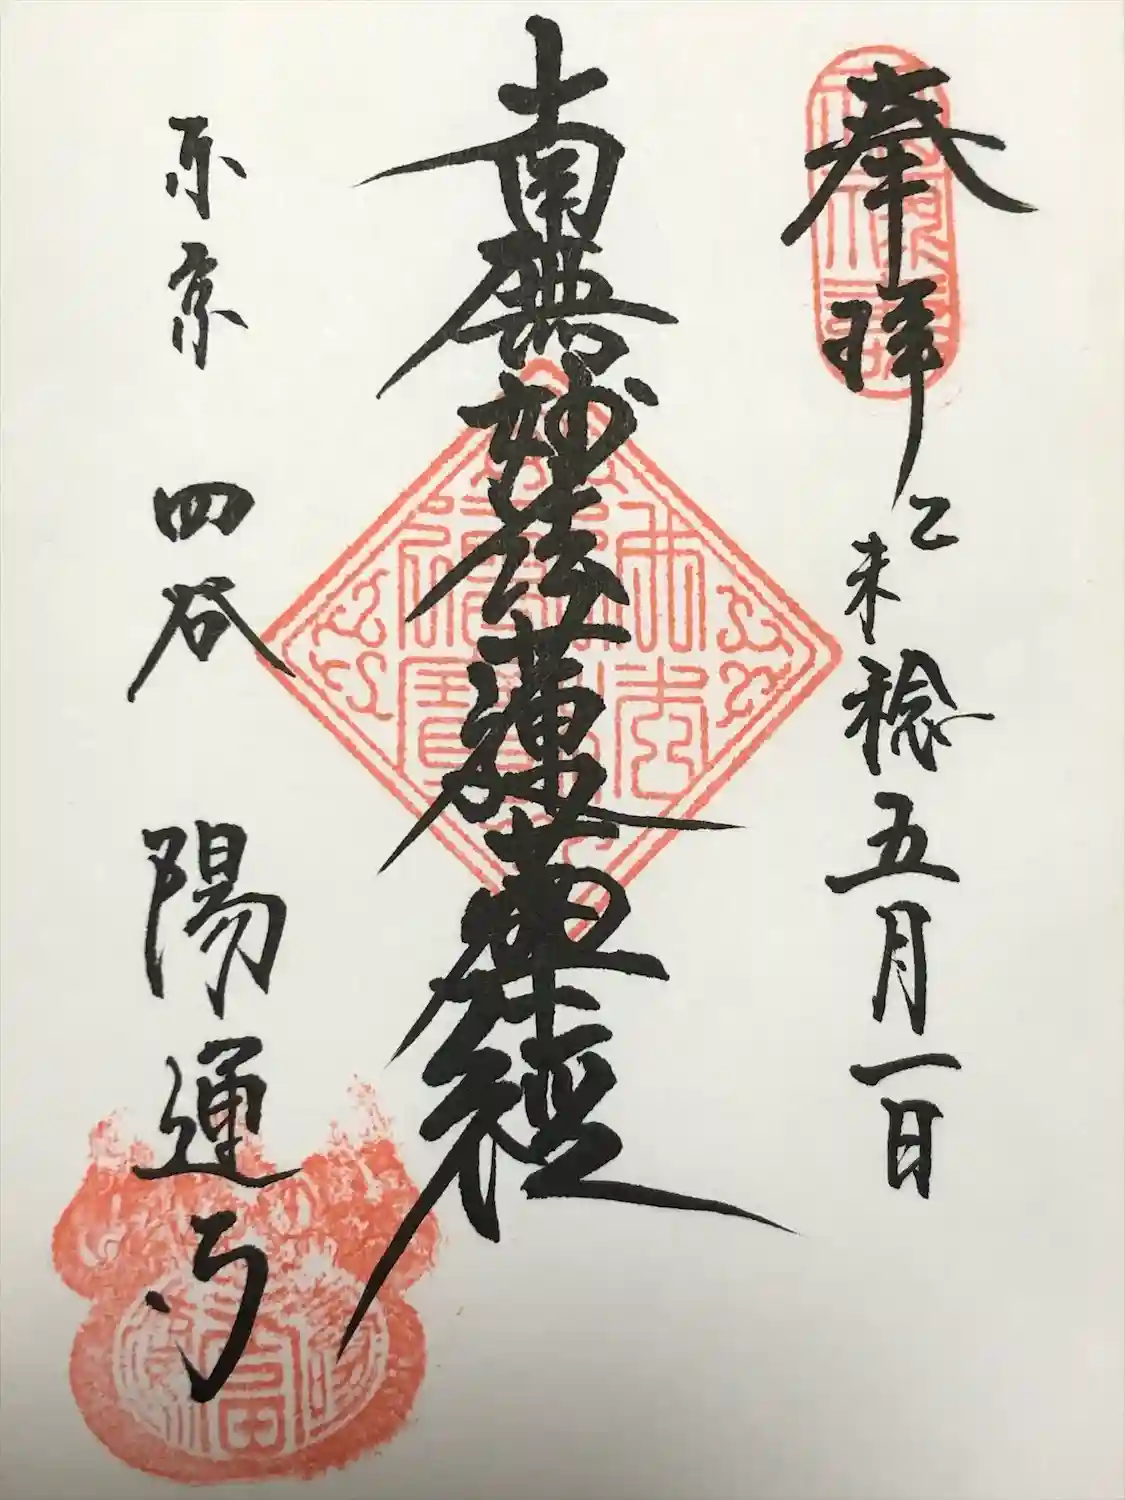 奉拝
乙未稔五月一日
南無妙法蓮華経
东京 四谷 陽運寺